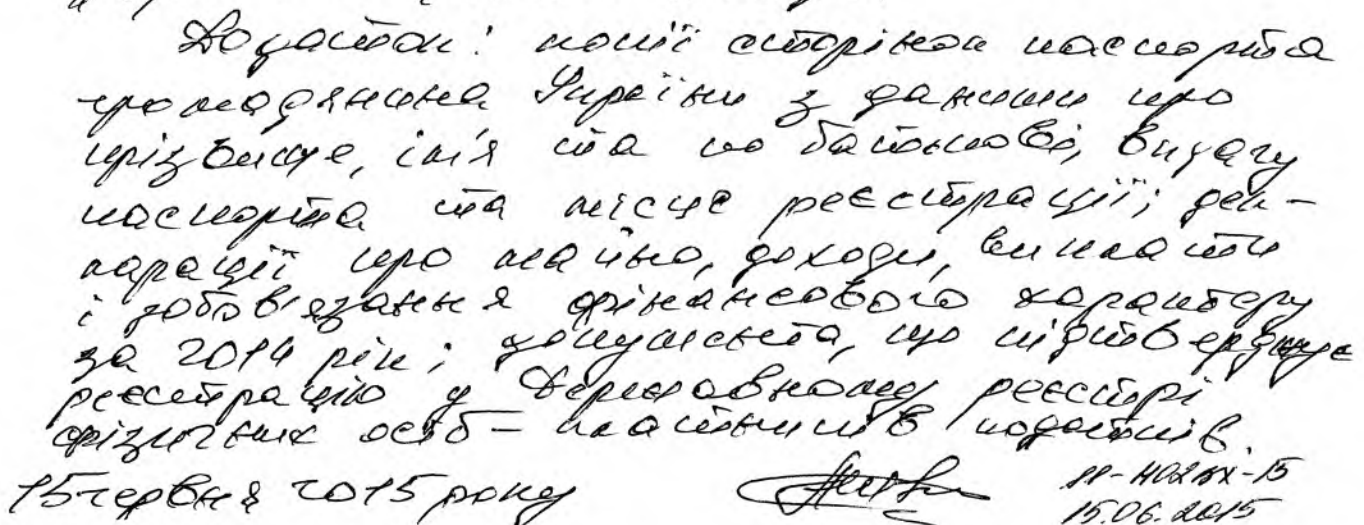 Додаток: копії сторінок паспорта
громадянина України з даними про
прізвище, ім'я та по батькові, видачу
паспорта та місце реєстрації; дек-
ларації про майно, доходи, витрати
і зобов'язання фінансового характеру
за 2014 рік; документа, що підтверджує
реєстрацію у Державному реєстрі
фізичних осіб – платників податків.
15 червня 2015 року
15.06.2015